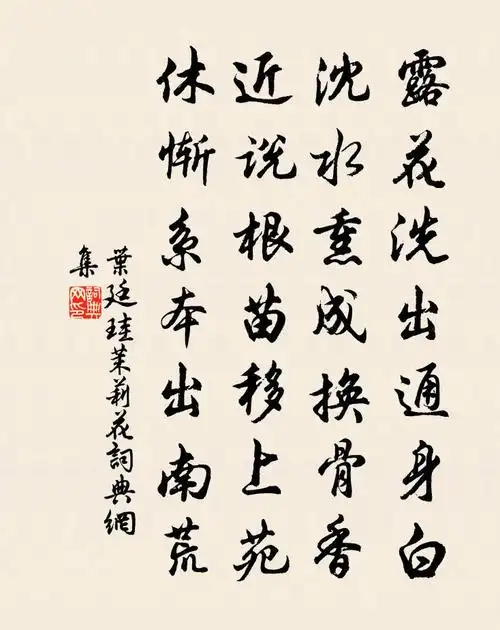 露花洗出通身白
沈水熏成换骨香
近说根苗移上苑
休惭系本出南荒
葉廷珪茉莉花詞典網
集
詞典網印